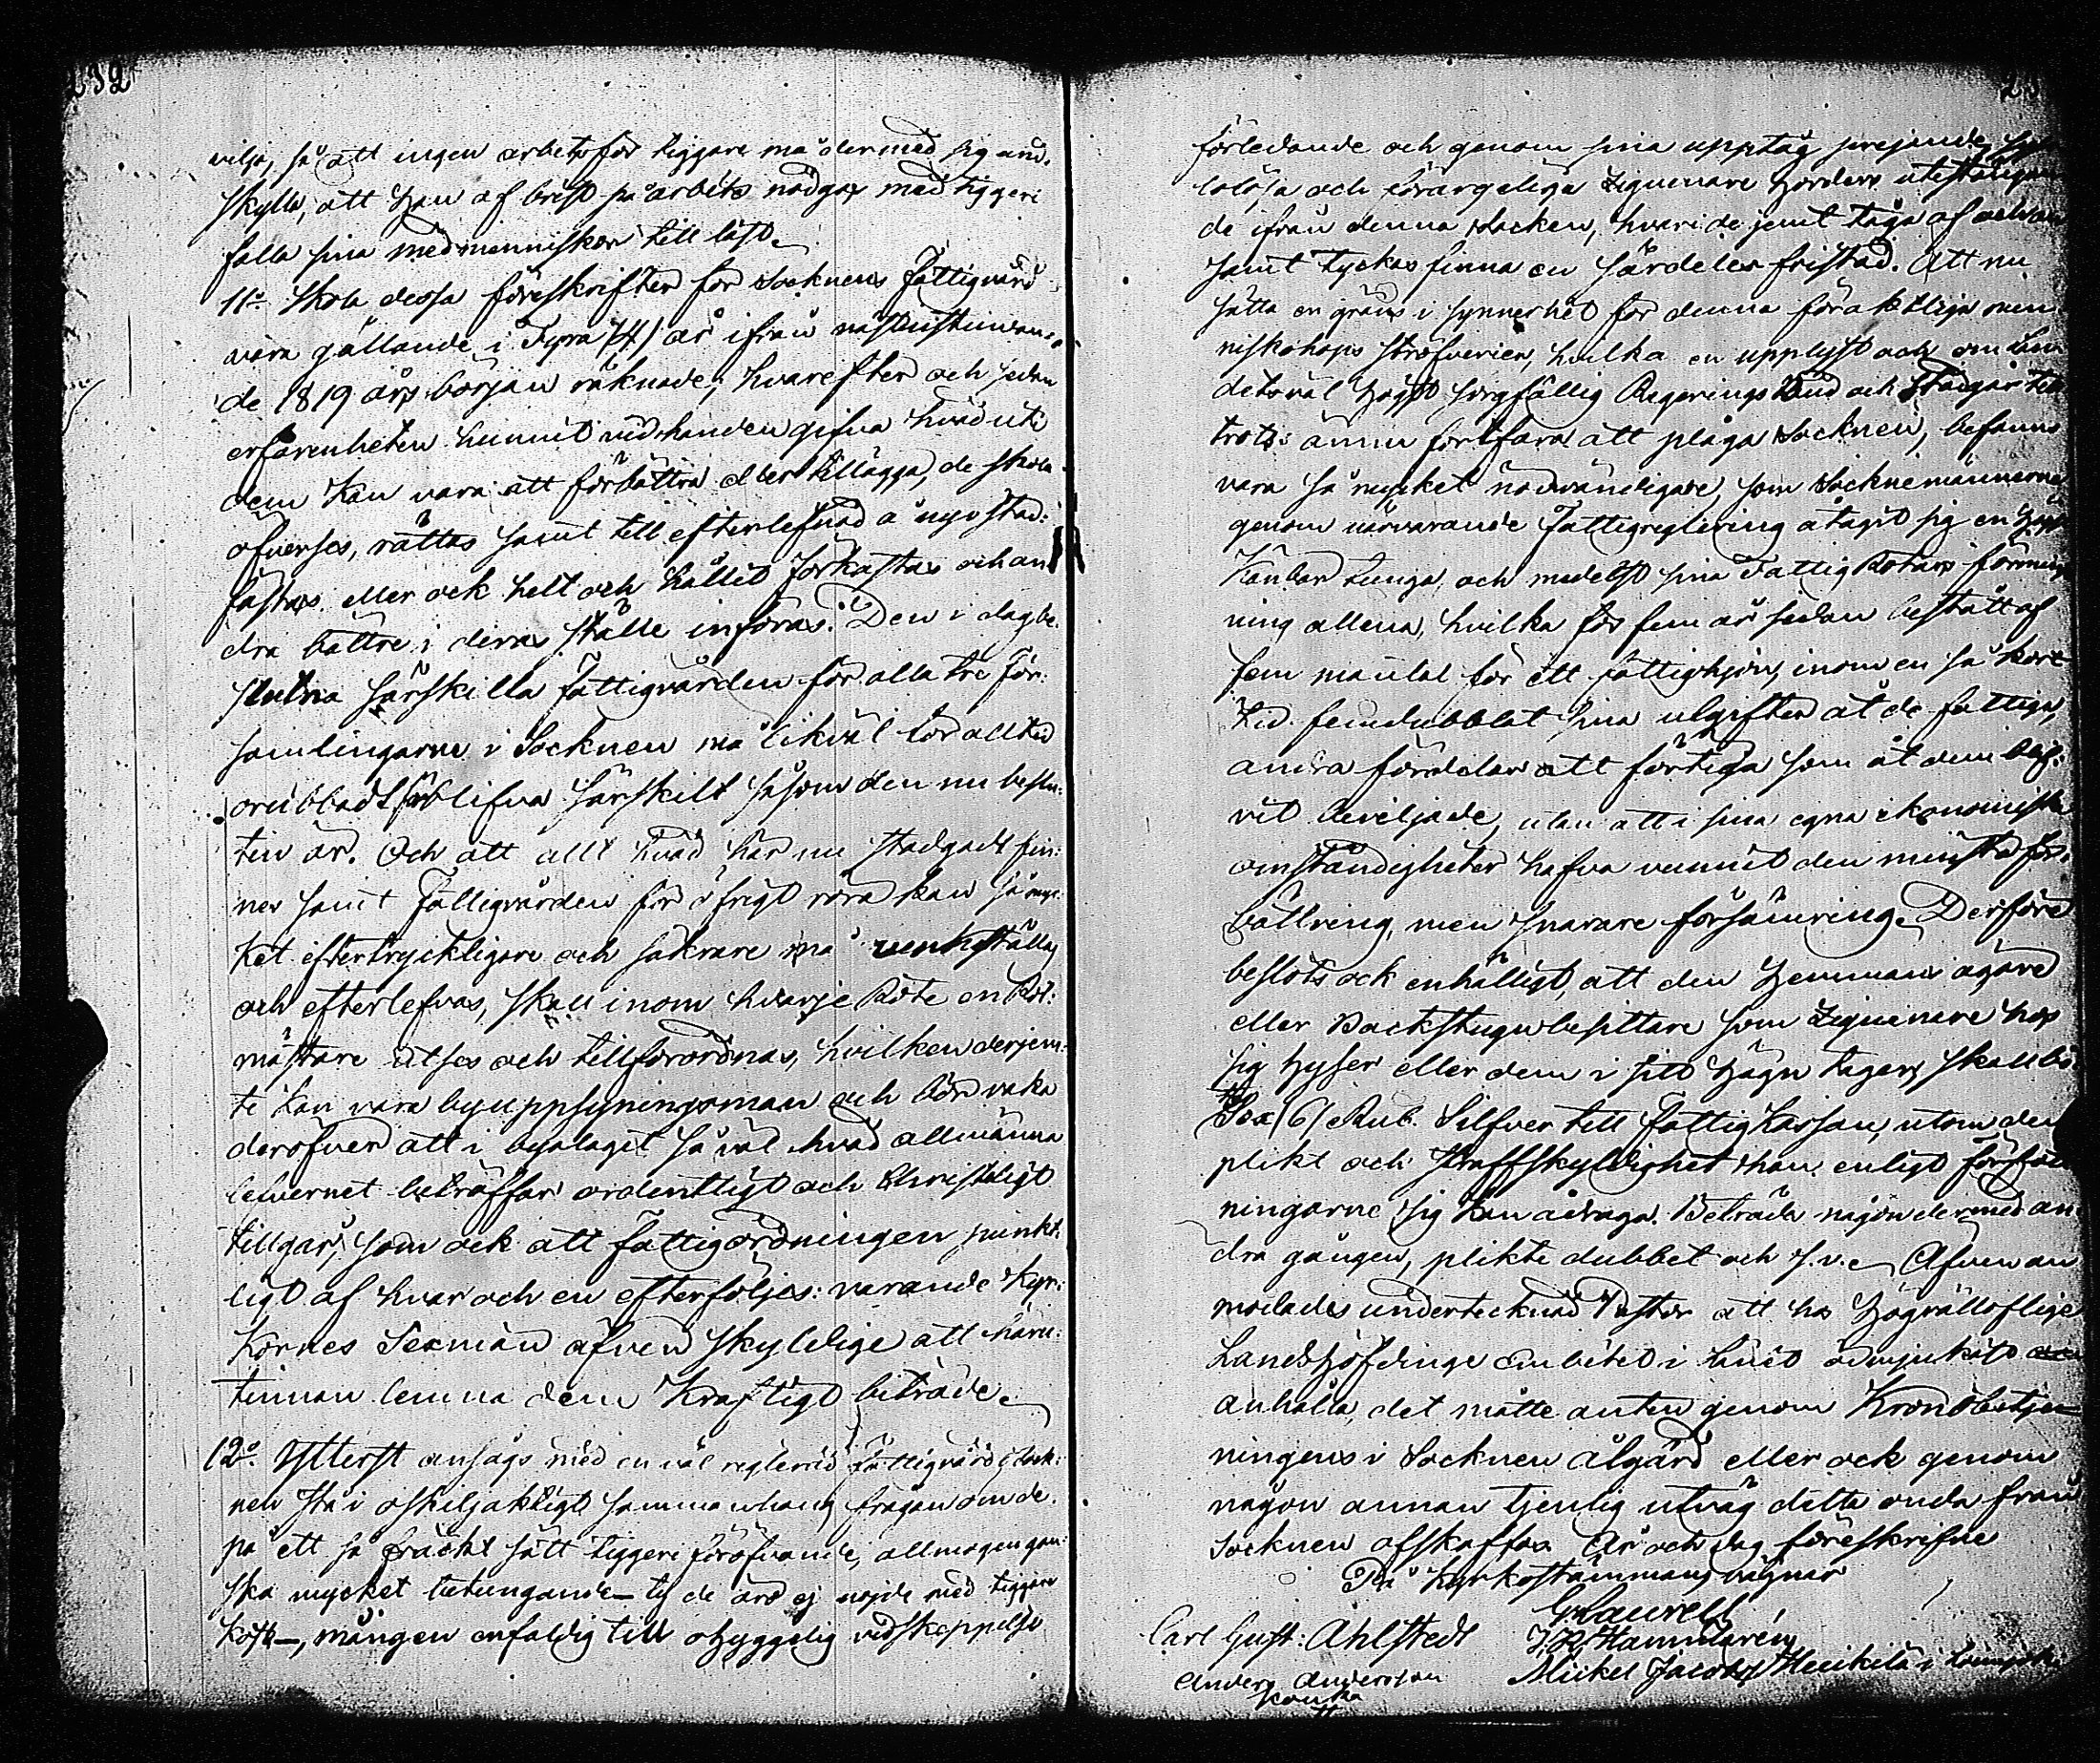 232
vilja, så att ingen arbetsför tiggare må dermed sig und-
skylla, att han af brist på arbete nödgas med tiggeri
falla sina medmenniskor till last.
11o Skola dessa föreskrifter för Socknens Fattigvård
vara gällande i Fyra /4/ år ifrån nästinstunan-
de 1819 års början räknade; hvarefter och sedan
erfarenheten hunnit vid handen gifva hvad uti
dem kan vara att förbättra eller tillägga, de skola
öfverses, rättas samt till efterlefnad å nyo stad:
fästas eller ock helt och hållit förkastas och an
dra bättre i deras ställe införas. Den i dag be-
slutna särskilla Fattigvården för alla tre För:
samlingarne i Socknen må likväl för alltid
orubbadt förblifva särskilt såsom den nu beslu:
tin är. Och att allt hvad här nu stadgadt fin:
nes samt Fattigvården för öfrigt röra kan så myc-
ket eftertryckligare och säkrare må verkställas
och efterlefvas, skall inom hvarje Rote en Rot:
mästare utses och tillförordnas, hvilken derjem:
te kan vara byuppsyningsman och bör vaka
deröfver att i byalaget så väl hvad allmänna
lefvernet beträffar ordentligt och Christeligt
tillgår, som ock att fattigordningen punkt-
ligt af hvar och en efterföljes: varande Kyr:
kornes Sexmän äfven skyldige att häru:
tinnan lemna dem kraftigt biträde.
12o. Ytterst ansågs med en väl reglerad fattigvård i Sock:
nen stå i oskiljaktligt sammanhang frågan om de
på ett så fräckt sätt tiggeri föröfvande, allmogen gan:
ska mycket betungande – ty de äro ej nöjde med tiggare
kost –, mången enfaldig till ohyggelig vidskeppelse
förledande och genom sina upptåg prejande,
lolösa och förargeliga Ziguenare horders utestängan
de ifrån denna Socken, hvari de jemt tåga af och an
samt tyckas finna en särdeles fristad. Att nu
sätta en gräns i synnerhet för denna föraktliga men
niskohops ströfverier, hvilka en upplyst och om län
dets väl högst sorgfällig Regerings bud och stängar till
trots ännu fortfara att plåga Socknen, befanns
vara så mycket nödvändigare, som Sockne männerne
genom närvarande Fattigreglering åtagit sig en högst
känbar tunga, och medelst sina Fattig Rotars förmins
ning allena, hvilka för fem år sedan bestått af
fem mantal för ett fattighjon, inom en så kort
tid femdubblat sina utgifter åt de fattiga,
andra fördelar att förtiga som åt dem blif:
vit beviljade, utan att i sina egna ekonomiska
omständigheter hafva vunnit den minsta för:
bättring, men snarare försämring. Derföre
beslöts ock enhälligt, att den hemmans ägare
eller Backstugubesittare som Ziguenare hos
sig hyser eller dem i sitt hägn tager, skall bö
ta Sex /6/ Rub. Silfver till fattig Kassan, utom den
plikt och straffskyldighet han enligt författ
ningarne sig kan ådraga. Beträdes någon dermed an
dra gången, plikte dubbelt och s.v. Äfven an
modades undertecknad Pastor att hos Högvälloflige
Landshöfdinge Embetet i länet ödmjukast
anhålla, det måtte anten genom Kronobetje
ningens i Socknen åtgärd eller ock genom
någon annan tjenlig utväg detta onda från
Socknen afskaffas. År och dag föreskrifne
På Kyrkostämmans vägnar
G. Laurell
Carl Gust: Ahlstedt J. R. Hammarén
Anders Andersson Mickel Jacobss Heikilä i
Kouka